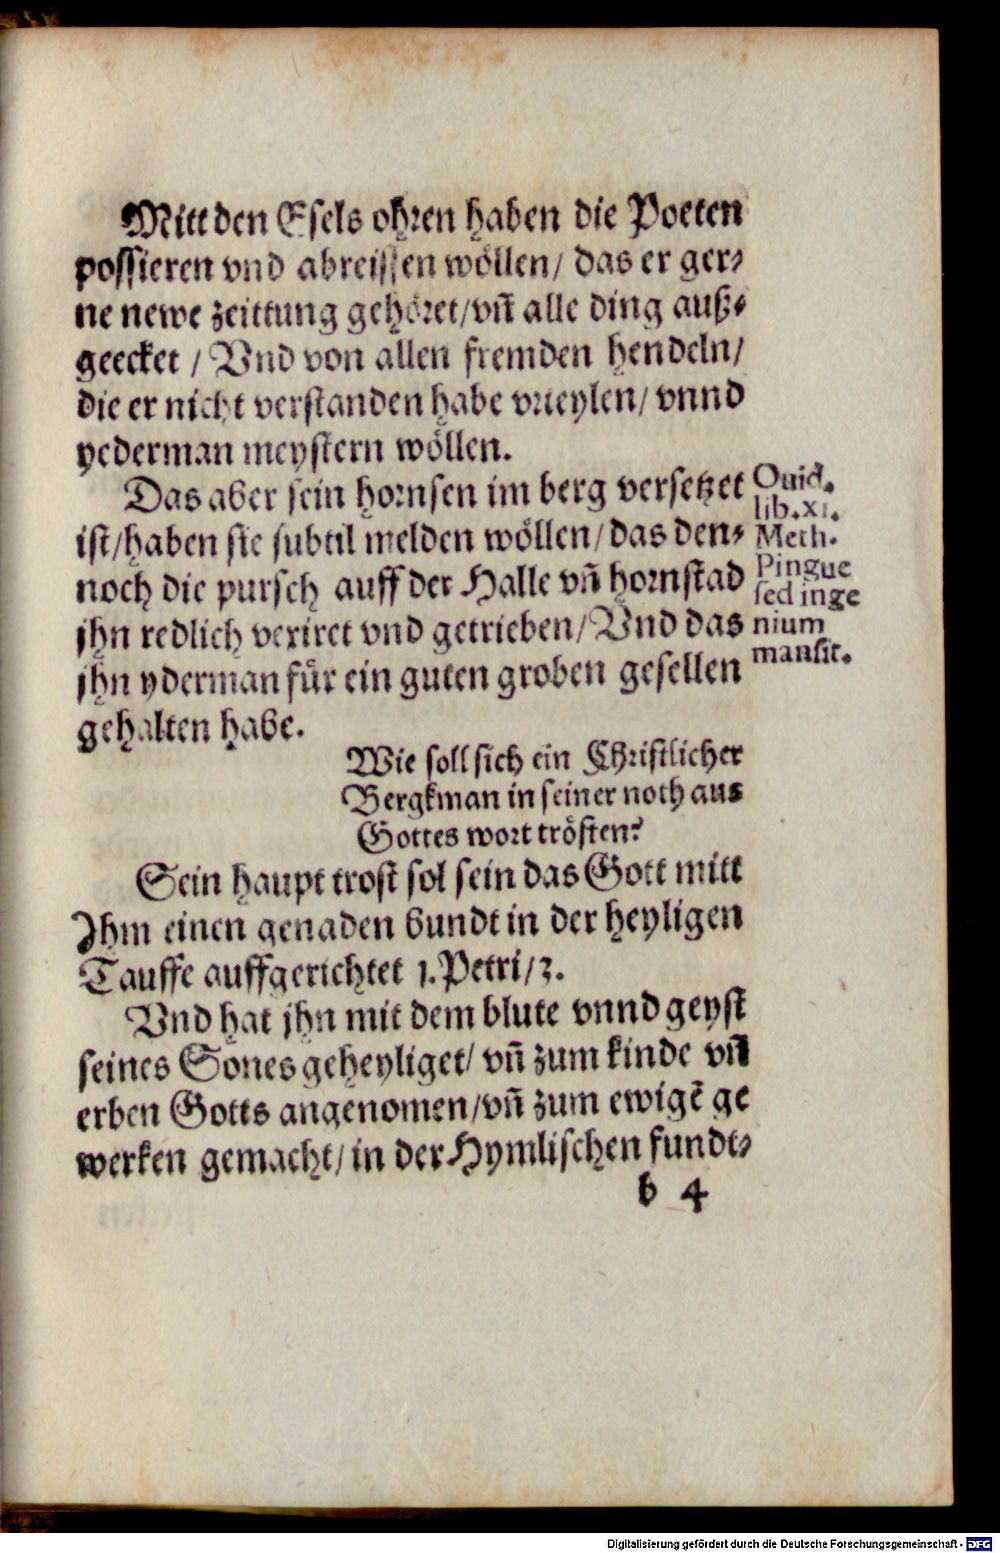 Mitt den Esels ohren haben die Poeten
possieren vnd abreissen wöllen/ das er ger⸗
ne newe zeittung gehöret/vñ alle ding auß⸗
geecket / Vnd von allen fremden hendeln/
die er nicht verstanden habe vrteylen/ vnnd
yederman meystern wöllen.
Das aber sein hornsen im berg versetzet
ist/haben sie subtil melden wöllen/das den⸗
noch die pursch auff der Halle vñ hornstad
jhn redlich vexiret vnd getrieben/Vnd das
jhn yderman für ein guten groben gesellen
gehalten habe.
Ouid.
lib.xi.
Meth.
Pingue
sed inge
nium
mansit.
Wie soll sich ein Christlicher
Bergkman in seiner noth aus
Gottes wort trösten?
Sein haupt trost sol sein das Gott mitt
Jhm einen genaden bundt in der heyligen
Tauffe auffgerichtet 1.Petri/3.
Vnd hat jhn mit dem blute vnnd geyst
seines Sones geheyliget/ vñ zum kinde vñ
erben Gotts angenomen/vñ zum ewigē ge
werken gemacht/in der Hymlischen fundt⸗
b 4
Digitalisierung gefördert durch die Deutsche Forschungsgemeinschaft - DFG